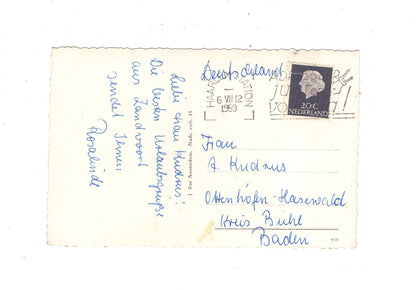 Liebe Frau Kudrus!
Die besten Urlaubsgrüße
aus Zandvoort
sendet Ihnen
Rosalinde
J. Amsterdam. Nadr. verb.
Deutschland
HAAR STATION
6 VII 12
1959
20 C
NEDERLAND
Frau
A. Kudrus
Ottenhöfen-Hasewald
Kreis Bühl
Baden